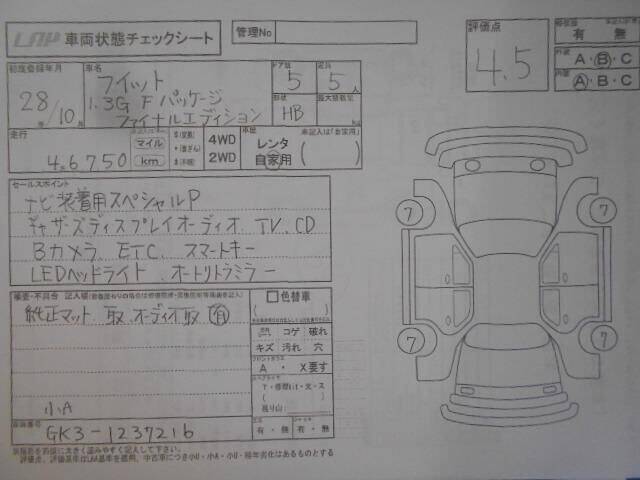 LAP 車両状態チェックシート
管理No
評価点 4.5
修復歴 有 無
外装 A・B・C
内装 A・B・C
初度登録年月 28年/10月
車名 フィット
1.3G F パッケージ
ファイナルエディション
ドア数 5
定員 5人
形状 HB
最大積載量 kg
走行 4.6750
マイル
km
4WD
2WD
車歴
レンタ
自家用
セールスポイント
ナビ装着用スペシャルP
ギャザーズディスプレイオーディオ TV.CD
Bカメラ、ETC、スマートキー
LEDヘッドライト、オートリトラミラー
検査・不具合 記入欄
純正マット 取、オーディオ取 有
小A
色替車
コゲ 破れ
キズ 汚れ 穴
フロントガラス
A ・ X要す
残り山
有・無 有・無
車台番号
GK3-1237216
7
7
7
7